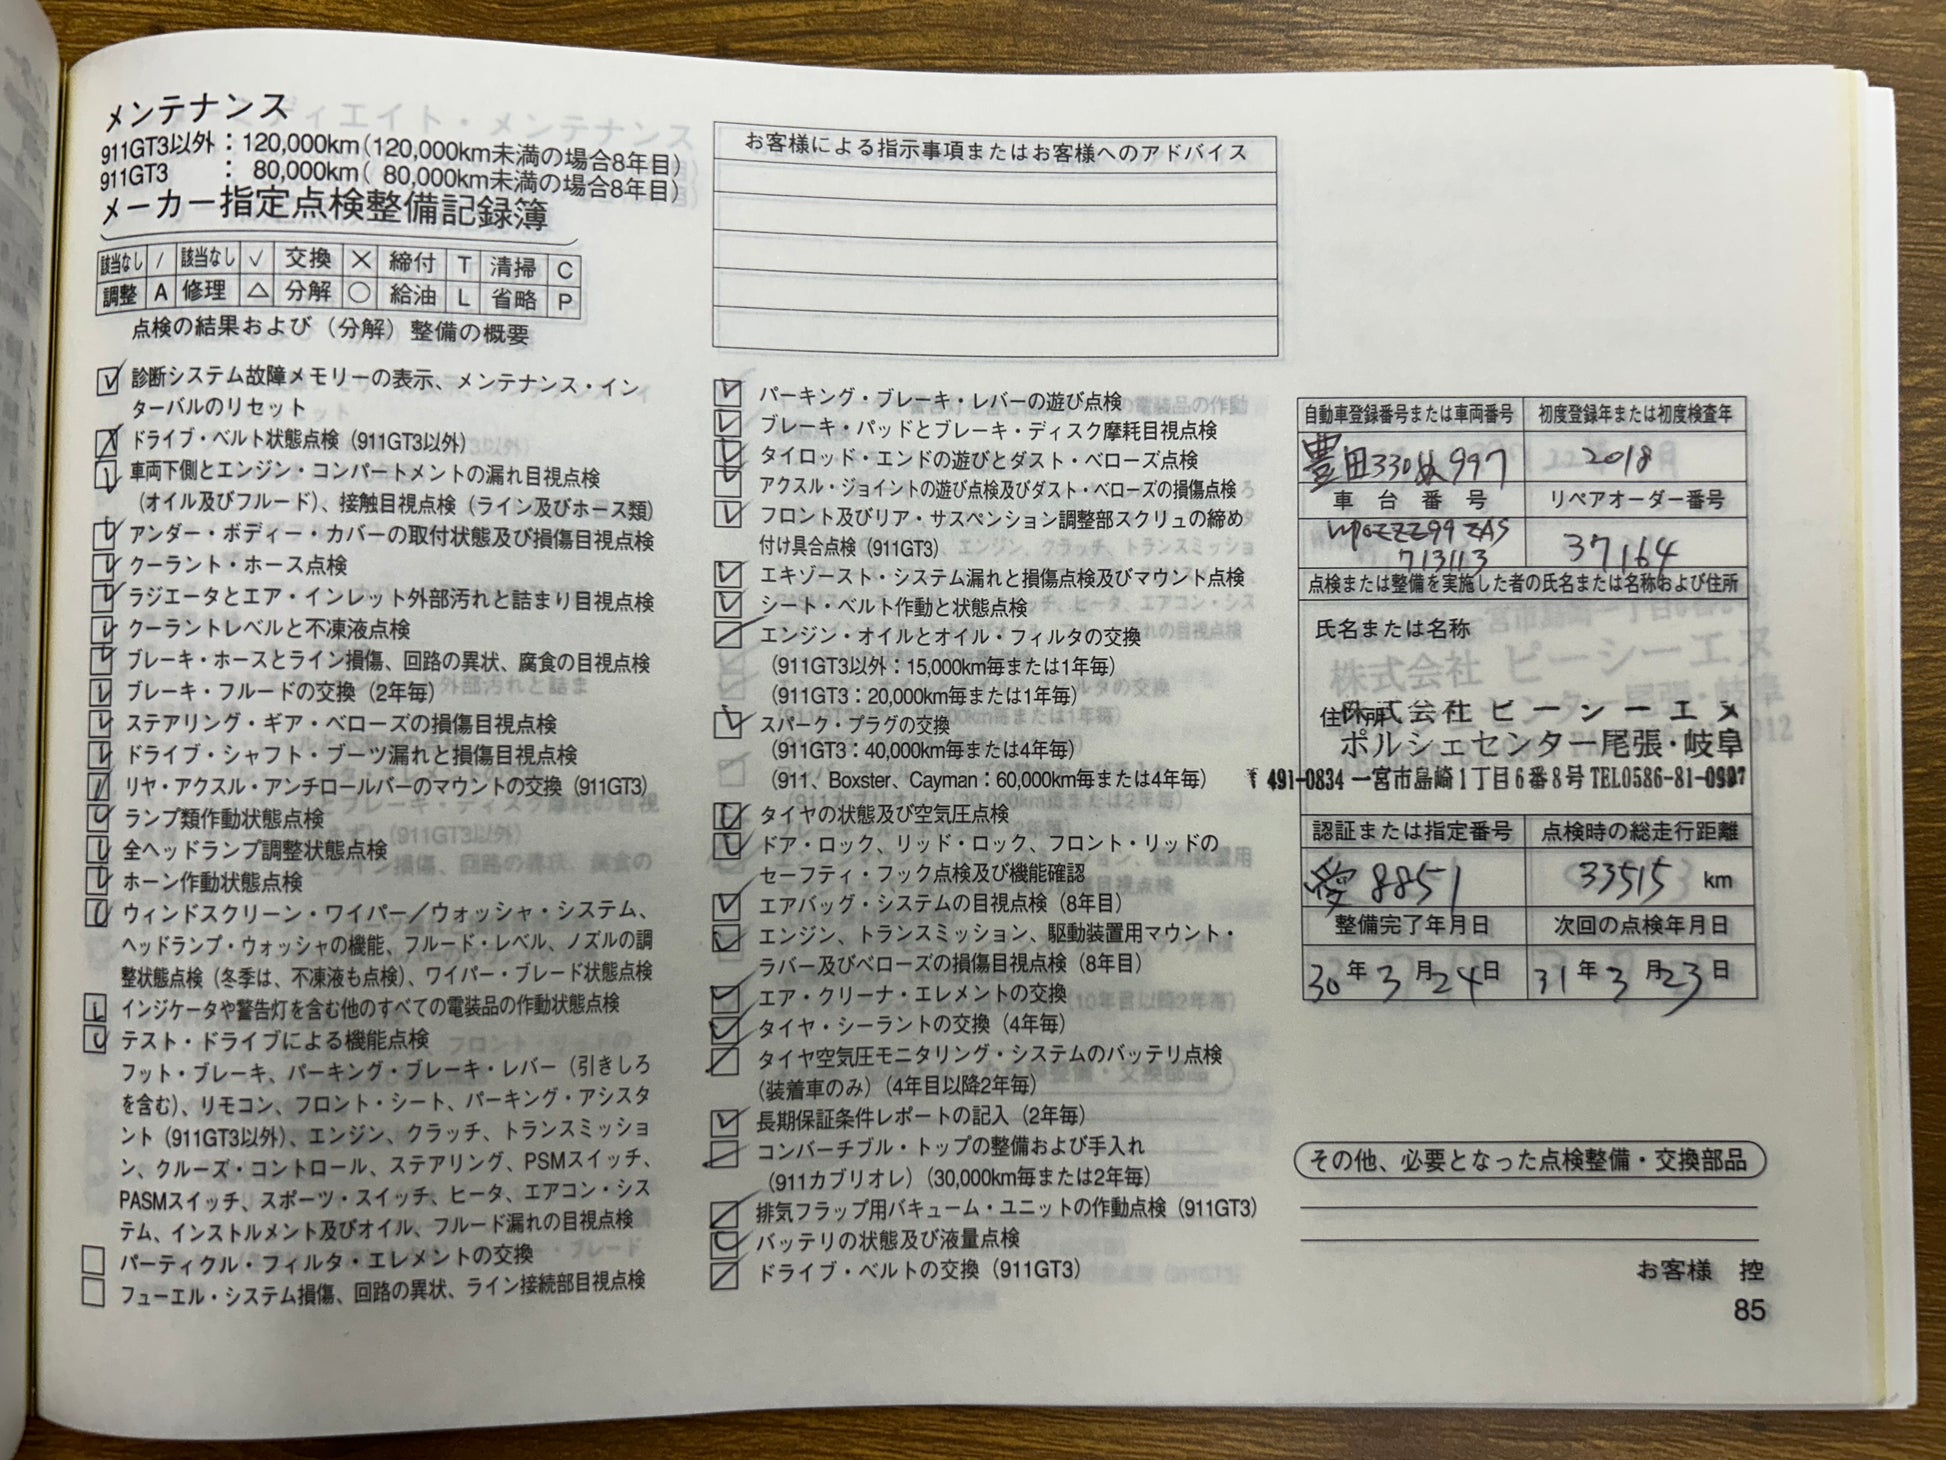 メンテナンス
911GT3以外：120,000km（120,000km未満の場合8年目）
911GT3　　：　80,000km（ 80,000km未満の場合8年目）
メーカー指定点検整備記録簿
該当なし / 該当なし ✓ 交換 ╳ 締付 T 清掃 C
調整 A 修理 △ 分解 ○ 給油 L 省略 P
点検の結果および（分解）整備の概要
診断システム故障メモリーの表示、メンテナンス・イン
ターバルのリセット
ドライブ・ベルト状態点検（911GT3以外）
車両下側とエンジン・コンパートメントの漏れ目視点検
（オイル及びフルード）、接触目視点検（ライン及びホース類）
アンダー・ボディー・カバーの取付状態及び損傷目視点検
クーラント・ホース点検
ラジエータとエア・インレット外部汚れと詰まり目視点検
クーラントレベルと不凍液点検
ブレーキ・ホースとライン損傷、回路の異状、腐食の目視点検
ブレーキ・フルードの交換（2年毎）
ステアリング・ギア・ベローズの損傷目視点検
ドライブ・シャフト・ブーツ漏れと損傷目視点検
リヤ・アクスル・アンチロールバーのマウントの交換（911GT3）
ランプ類作動状態点検
全ヘッドランプ調整状態点検
ホーン作動状態点検
ウィンドスクリーン・ワイパー／ウォッシャ・システム、
ヘッドランプ・ウォッシャの機能、フルード・レベル、ノズルの調
整状態点検（冬季は、不凍液も点検）、ワイパー・ブレード状態点検
インジケータや警告灯を含む他のすべての電装品の作動状態点検
テスト・ドライブによる機能点検
フット・ブレーキ、パーキング・ブレーキ・レバー（引きしろ
を含む）、リモコン、フロント・シート、パーキング・アシスタ
ント（911GT3以外）、エンジン、クラッチ、トランスミッショ
ン、クルーズ・コントロール、ステアリング、PSMスイッチ、
PASMスイッチ、スポーツ・スイッチ、ヒータ、エアコン・シス
テム、インストルメント及びオイル、フルード漏れの目視点検
パーティクル・フィルタ・エレメントの交換
フューエル・システム損傷、回路の異状、ライン接続部目視点検
お客様による指示事項またはお客様へのアドバイス
パーキング・ブレーキ・レバーの遊び点検
ブレーキ・パッドとブレーキ・ディスク摩耗目視点検
タイロッド・エンドの遊びとダスト・ベローズ点検
アクスル・ジョイントの遊び点検及びダスト・ベローズの損傷点検
フロント及びリア・サスペンション調整部スクリュの締め
付け具合点検（911GT3）
エキゾースト・システム漏れと損傷点検及びマウント点検
シート・ベルト作動と状態点検
エンジン・オイルとオイル・フィルタの交換
（911GT3以外：15,000km毎または1年毎）
（911GT3：20,000km毎または1年毎）
スパーク・プラグの交換
（911GT3：40,000km毎または4年毎）
（911、Boxster、Cayman：60,000km毎または4年毎）
タイヤの状態及び空気圧点検
ドア・ロック、リッド・ロック、フロント・リッドの
セーフティ・フック点検及び機能確認
エアバッグ・システムの目視点検（8年目）
エンジン、トランスミッション、駆動装置用マウント・
ラバー及びベローズの損傷目視点検（8年目）
エア・クリーナ・エレメントの交換
タイヤ・シーラントの交換（4年毎）
タイヤ空気圧モニタリング・システムのバッテリ点検
（装着車のみ）（4年目以降2年毎）
長期保証条件レポートの記入（2年毎）
コンバーチブル・トップの整備および手入れ
（911カブリオレ）（30,000km毎または2年毎）
排気フラップ用バキューム・ユニットの作動点検（911GT3）
バッテリの状態及び液量点検
ドライブ・ベルトの交換（911GT3）
自動車登録番号または車両番号 初度登録年または初度検査年
豊田330ぬ997 2018
車台番号 リペアオーダー番号
WP0ZZZ99ZAS
713113 37164
点検または整備を実施した者の氏名または名称および住所
氏名または名称
住所
株式会社 ピーシーエヌ
ポルシェセンター尾張・岐阜
〒491-0834 一宮市島崎1丁目6番8号 TEL0586-81-0997
認証または指定番号 点検時の総走行距離
愛8851 33515 km
整備完了年月日 次回の点検年月日
30年3月24日 31年3月23日
その他、必要となった点検整備・交換部品
お客様　控
85